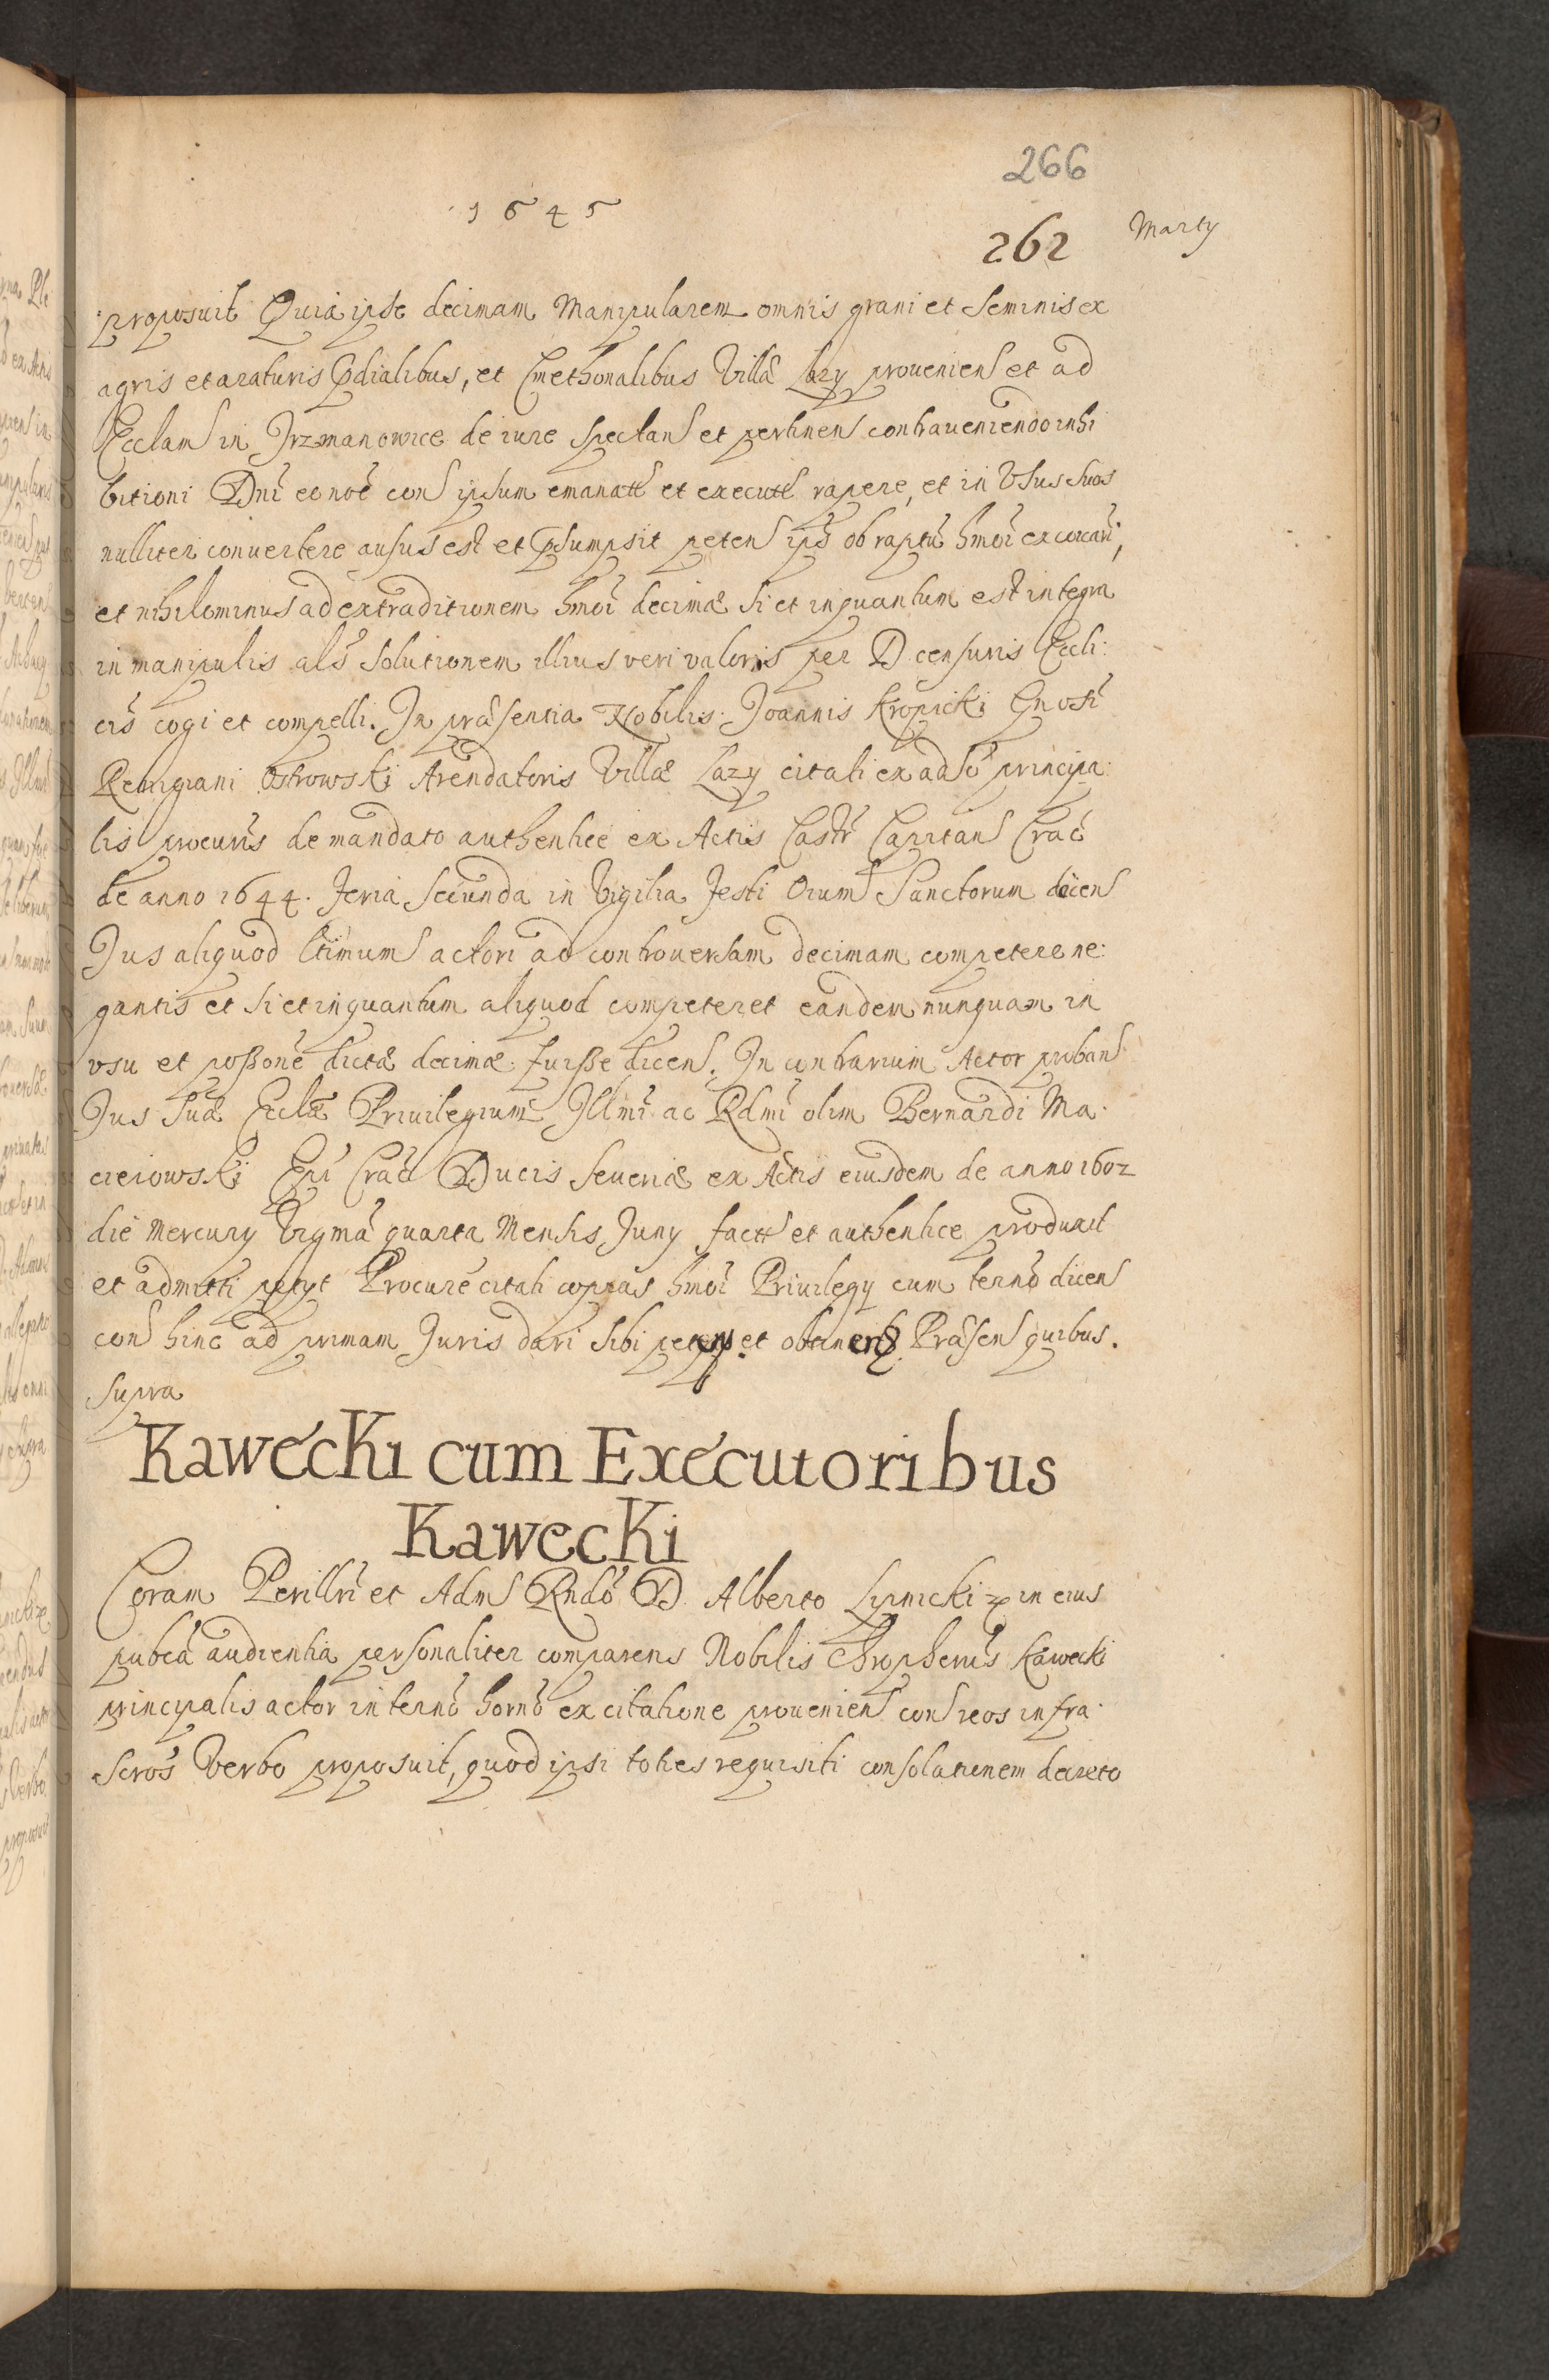 266
1645
262 Marty
proposuit Quia ipse decimam Manipularem omnis grani et Seminis ex
agris et araturis Pdialibus, et Cmethonalibus Villæ Lazy prouenien et ad
Ecclam in Jrzmanowice de iure spectan et pertinen contraueniendo inhi
bitioni Dni eo noe con ipsum emanatæ et executæ rapere, et in Vsus suos
nulliter conuertere ausus est et psumpsit peten ips ob raptu hmoi excoicari,
et nihilominus ad extraditionem hmoi decimæ si et inquantum est integra
in manipulis als solutionem illius veri valoris per D. censuris Eccli:
cis cogi et compelli. In præsentia Nobilis Joannis Kropicki Gnosi
Remigiani Ostrowski Arendatoris Villæ Lazy citati ex adso principa:
lis procuris de mandato authentice ex Actis Castr Capitan Crac
de anno 1644. feria secunda in Vigilia festi Oium Sanctorum dicen
Jus aliquod ltimum actori ad controuersam decimam competere ne:
gantis et si et inquantum aliquod competeret eandem nunquam in
vsu et possone dictæ decimæ fuisse dicen. In contrarium Actor proban
Jus suæ Ecclæ Priuilegium Illmi ac Rdmi olim Bernardi Ma:
cieiowski Epi Crac Ducis Seueriæ ex Actis eiusdem de anno 1602
die Mercury Vigma quarta Mensis Juny fact et authentice produxit
et admitti petyt Procure citati copias hmoi Priuilegy cum termo dicen
con hinc ad primam Juris dari sibi peten et obtinens. Præsen quibus
supra
Kawecki cum Executoribus
Kawecki
Coram Perillri et Adm Rndo D. Alberto Lipnicki in eius
pubca audientia personaliter comparens Nobilis Chropherus Kawecki
principalis actor in termo horno ex citatione prouenien con reos infra
scros Verbo proposuit, quod ipsi toties requisiti consolationem decreto